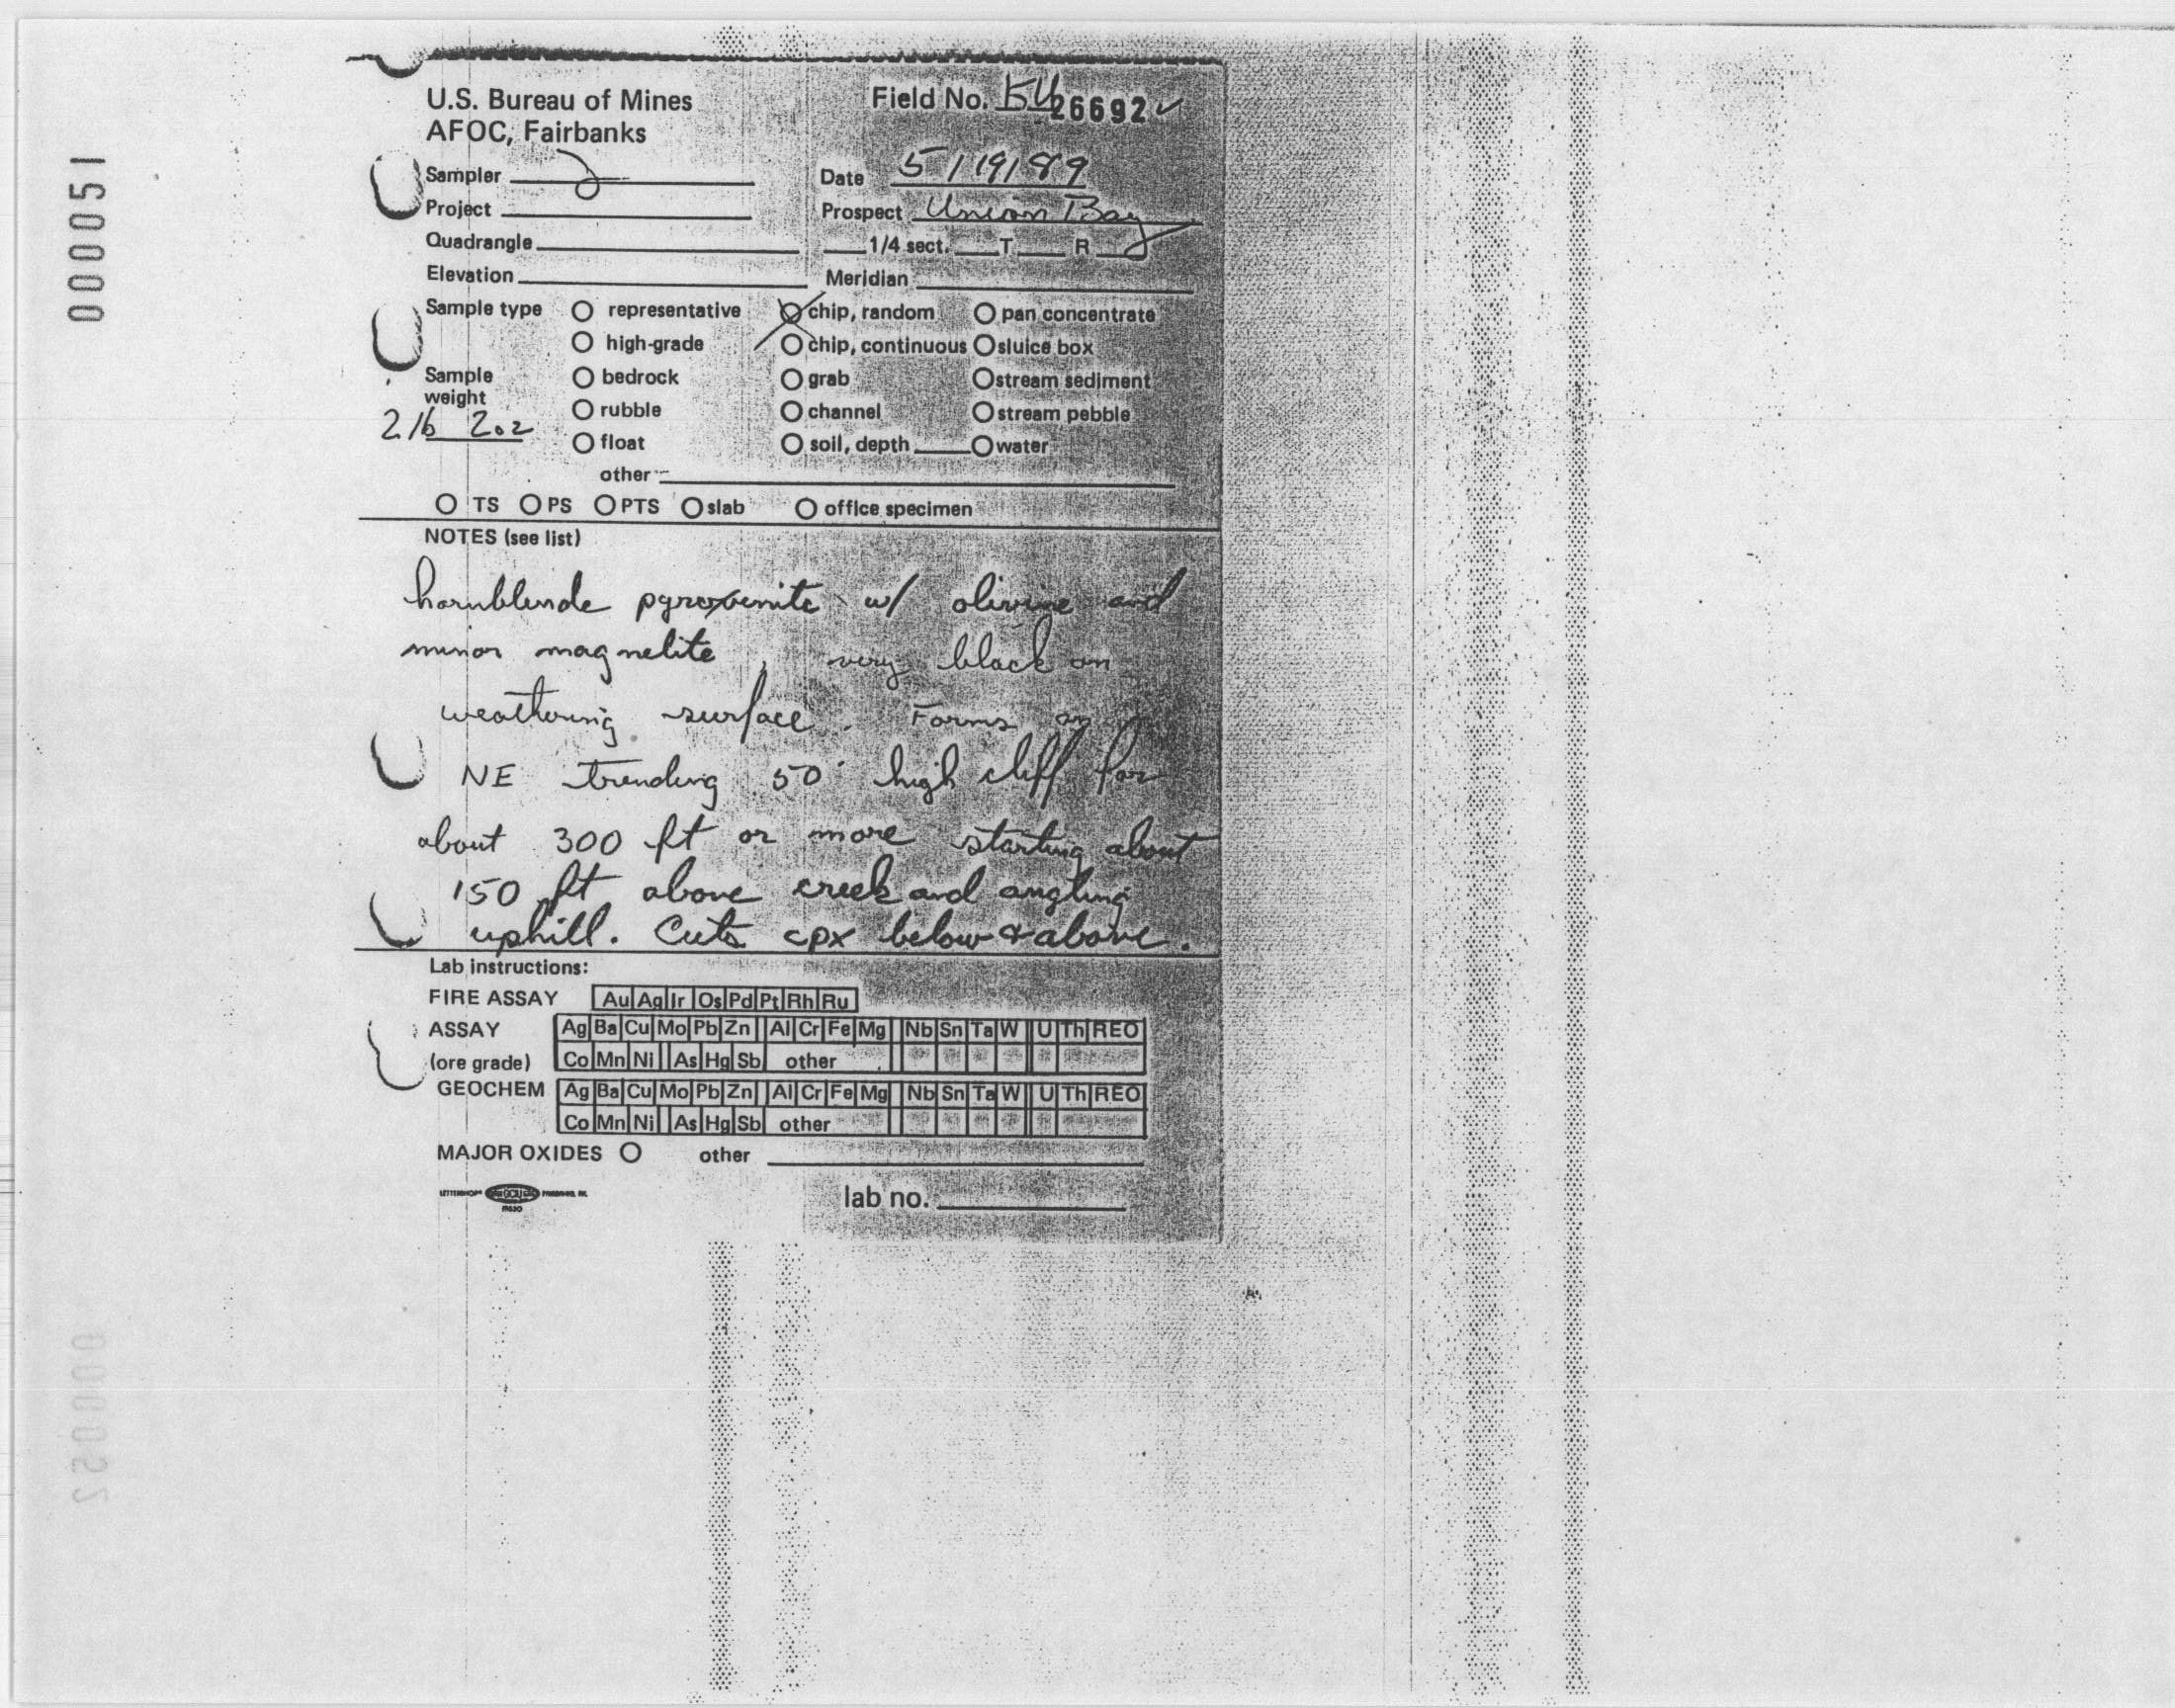 000051
U.S. Bureau of Mines
AFOC, Fairbanks
Field No. 26692 ✓
Sampler
Date 5/19/89
Project
Prospect Union Bay
Quadrangle
1/4 sect. T R
Elevation
Meridian
Sample type O representative O chip, random O pan concentrate
O high-grade O chip, continuous O sluice box
Sample weight
2 lb 2oz
O bedrock O grab O stream sediment
O rubble O channel O stream pebble
O float O soil, depth O water
other
O TS O PS O PTS O slab O office specimen
NOTES (see list)
hornblende pyroxenite w/ olivine and
minor magnetite, very black on
weathering surface. Forms an
NE trending 50' high cliff for
about 300 ft or more starting about
150 ft above creek and angling
uphill. Cuts cpx below & above.
Lab instructions:
FIRE ASSAY Au Ag Ir Os Pd Pt Rh Ru
ASSAY Ag Ba Cu Mo Pb Zn Al Cr Fe Mg Nb Sn Ta W U Th REO
(ore grade) Co Mn Ni As Hg Sb other
GEOCHEM Ag Ba Cu Mo Pb Zn Al Cr Fe Mg Nb Sn Ta W U Th REO
Co Mn Ni As Hg Sb other
MAJOR OXIDES O other
lab no.
000052